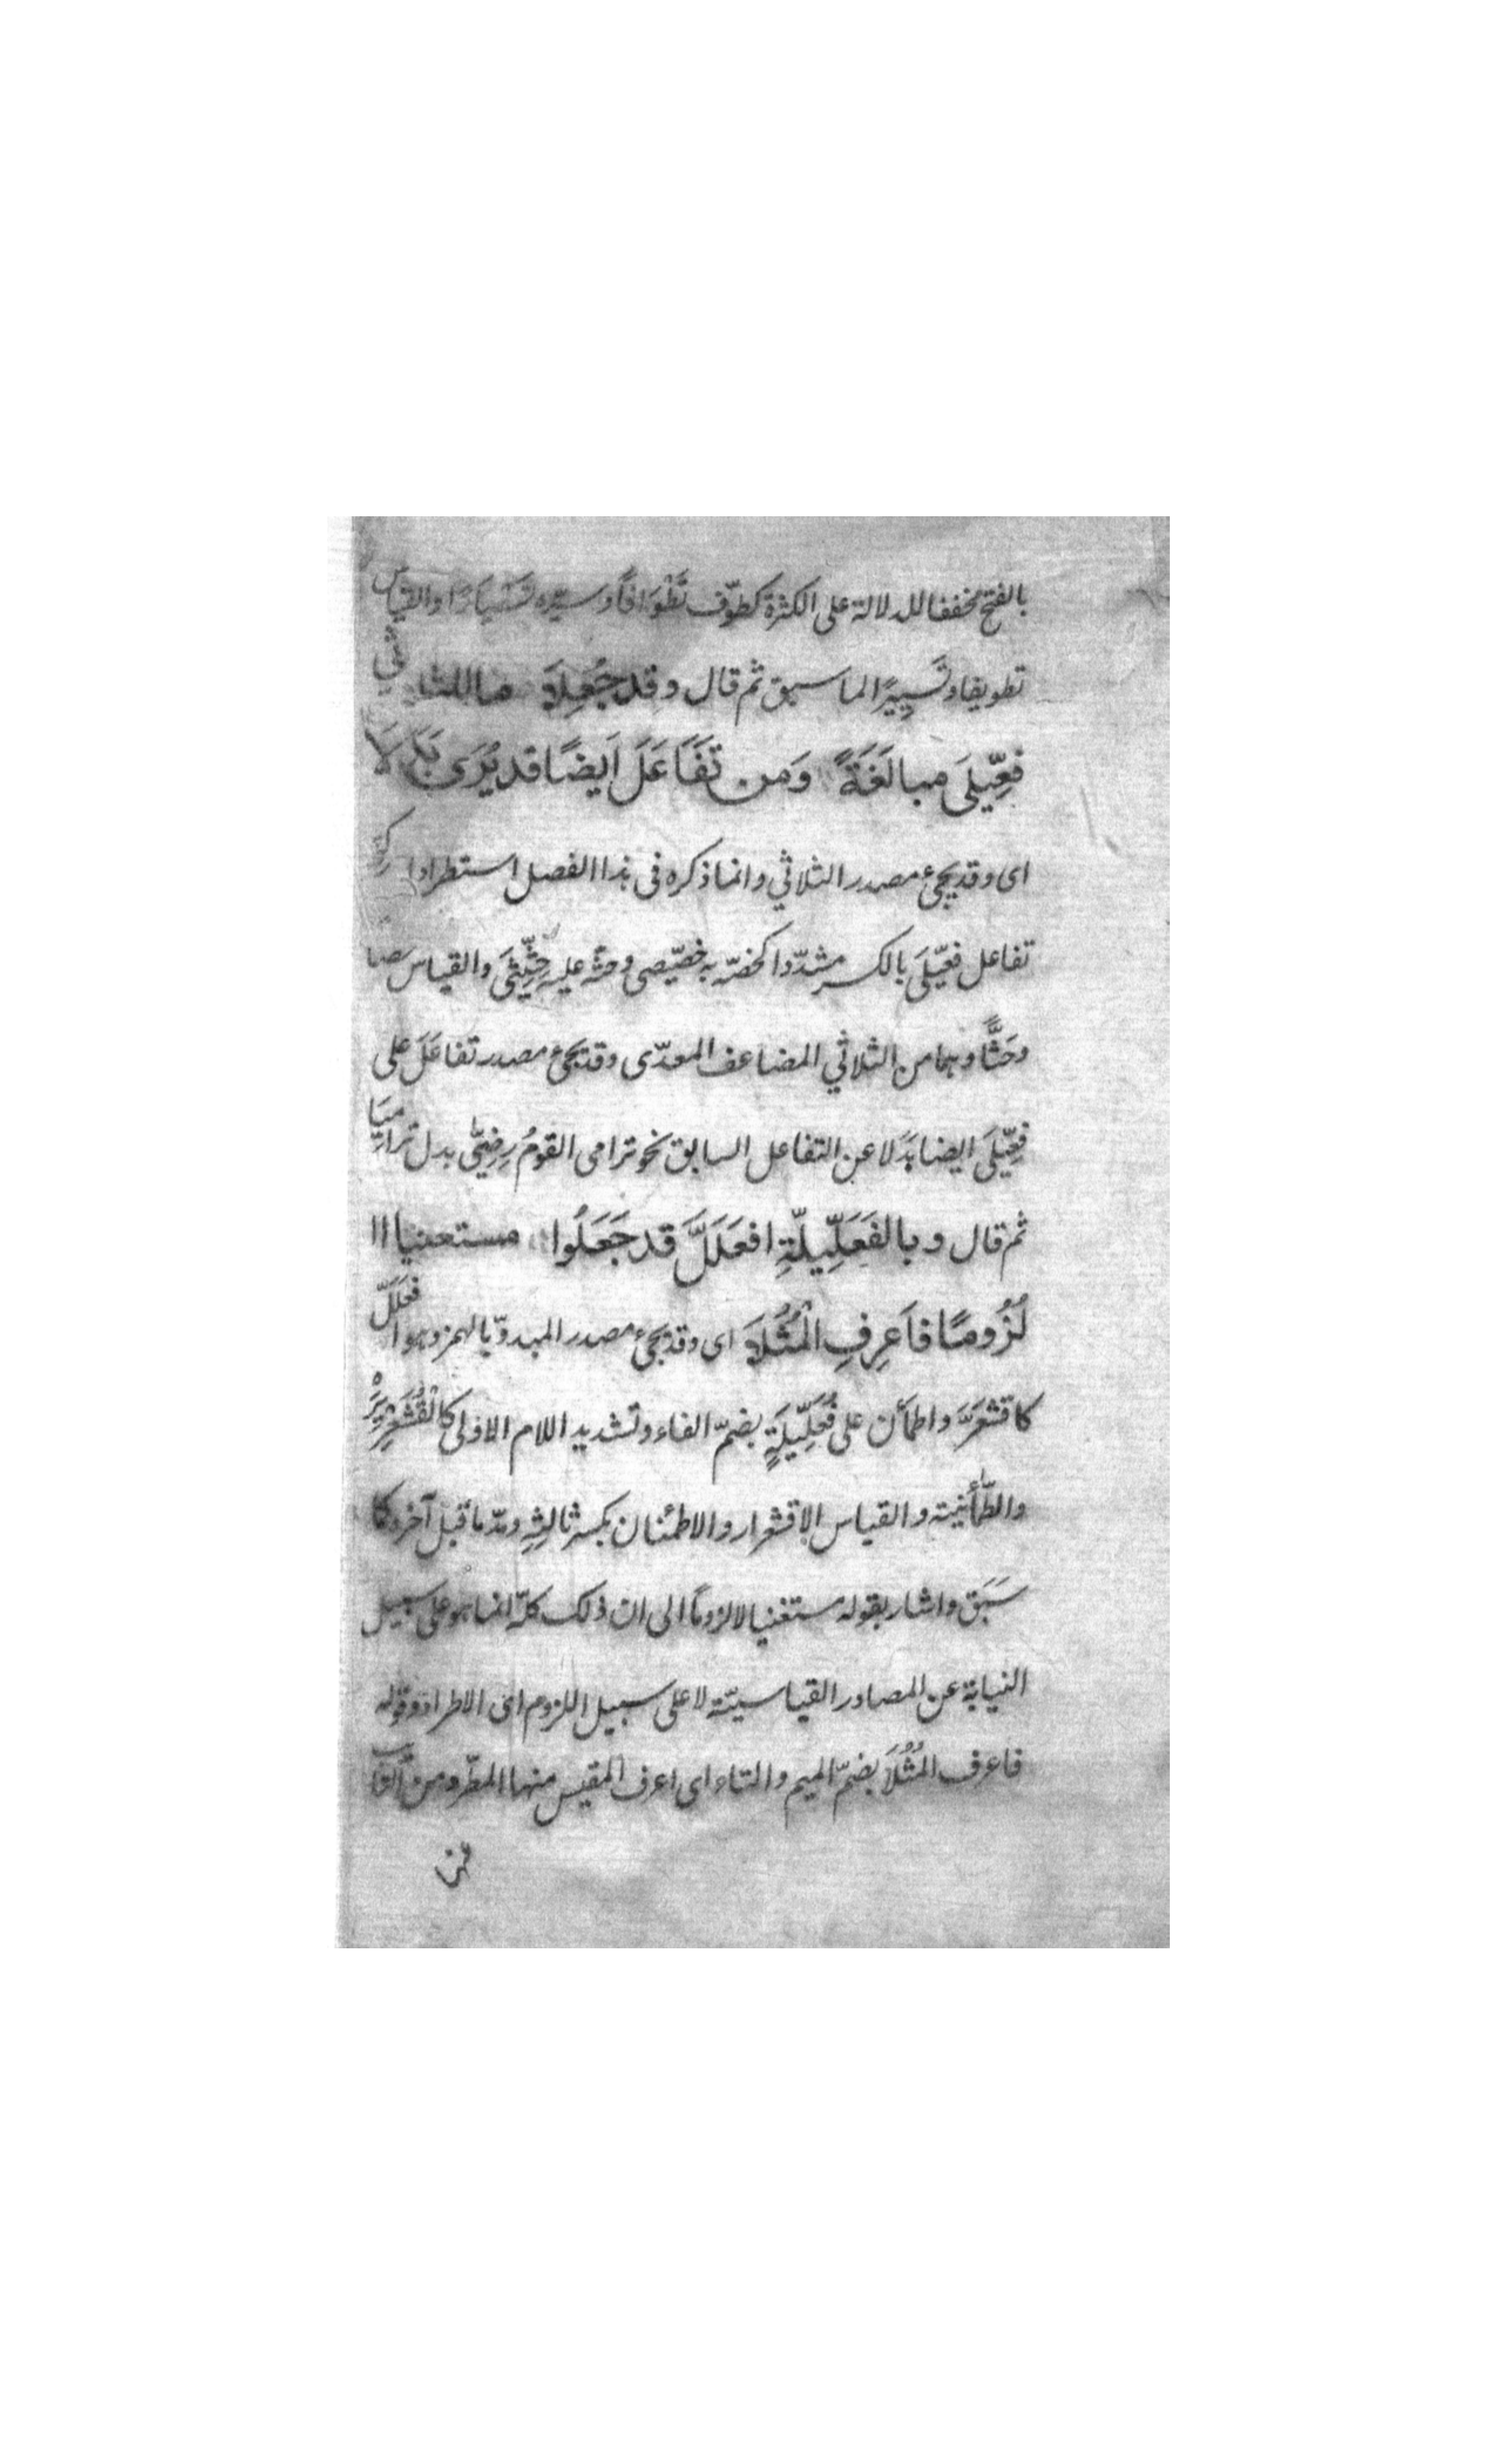 بالفتح مخففا للدلالة على الكثرة كطوّف تَطْوَافًا وسيّره تَسْيَارًا والقياس
تطويفا وتَسيِيرًا لما سبق ثم قال وقد جُعِلَا ما للثلاثي
فِعِّيلَى مبالَغَةً وَمن تَفَاعَلَ اَيضًا قد يُرَى بَدَلَا
اى وقد يجئ مصدر الثلاثي وانما ذكره فى هذا الفصل استطرادا
تفاعل فعّيلَى بالكسر مشدّدا كخصّه به خصّيصى وحثّه عليه حِثِّيثَى والقياس خصا
وحَثًّا وهما من الثلاثي المضاعف المعدّى وقد يجئ مصدر تفاعَلَ على
فِعِّيلَى ايضا بَدَلا عن التفاعل السابق نحو ترامى القومُ رِمِّيّى بدل ترامِيَا
ثم قال وبالفَعَلِّيلَّةِ افعَلَلَّ قد جَعَلُوا مستغنيا لا
لُزُومًا فاَعرِفِ الْمُثُلَا اى وقد يجئ مصدر المبدوّ بالهمز وهو افعَلَلّ
كاقشعَرَّ واطمأن على فُعَلِّيلَةٍ بضمّ الفاء وتشديد اللام الاولى كالْقُشَعْرِيرَةْ
والطّمأنينة والقياس الاقشعرار والاطمئنان بكسر ثالثِهِ ومدّ ما قبل آخره كما
سَبَق واشار بقوله مستغنيا لا لزومًا الى ان ذلك كلّه انما هو على سبيل
النيابة عن المصادر القياسيّة لا على سبيل اللزوم اى الاطراد وقوله
فاعرف المُثُلَا بضمّ الميم والثاء اى اعرف المقيس منها المطّرد من